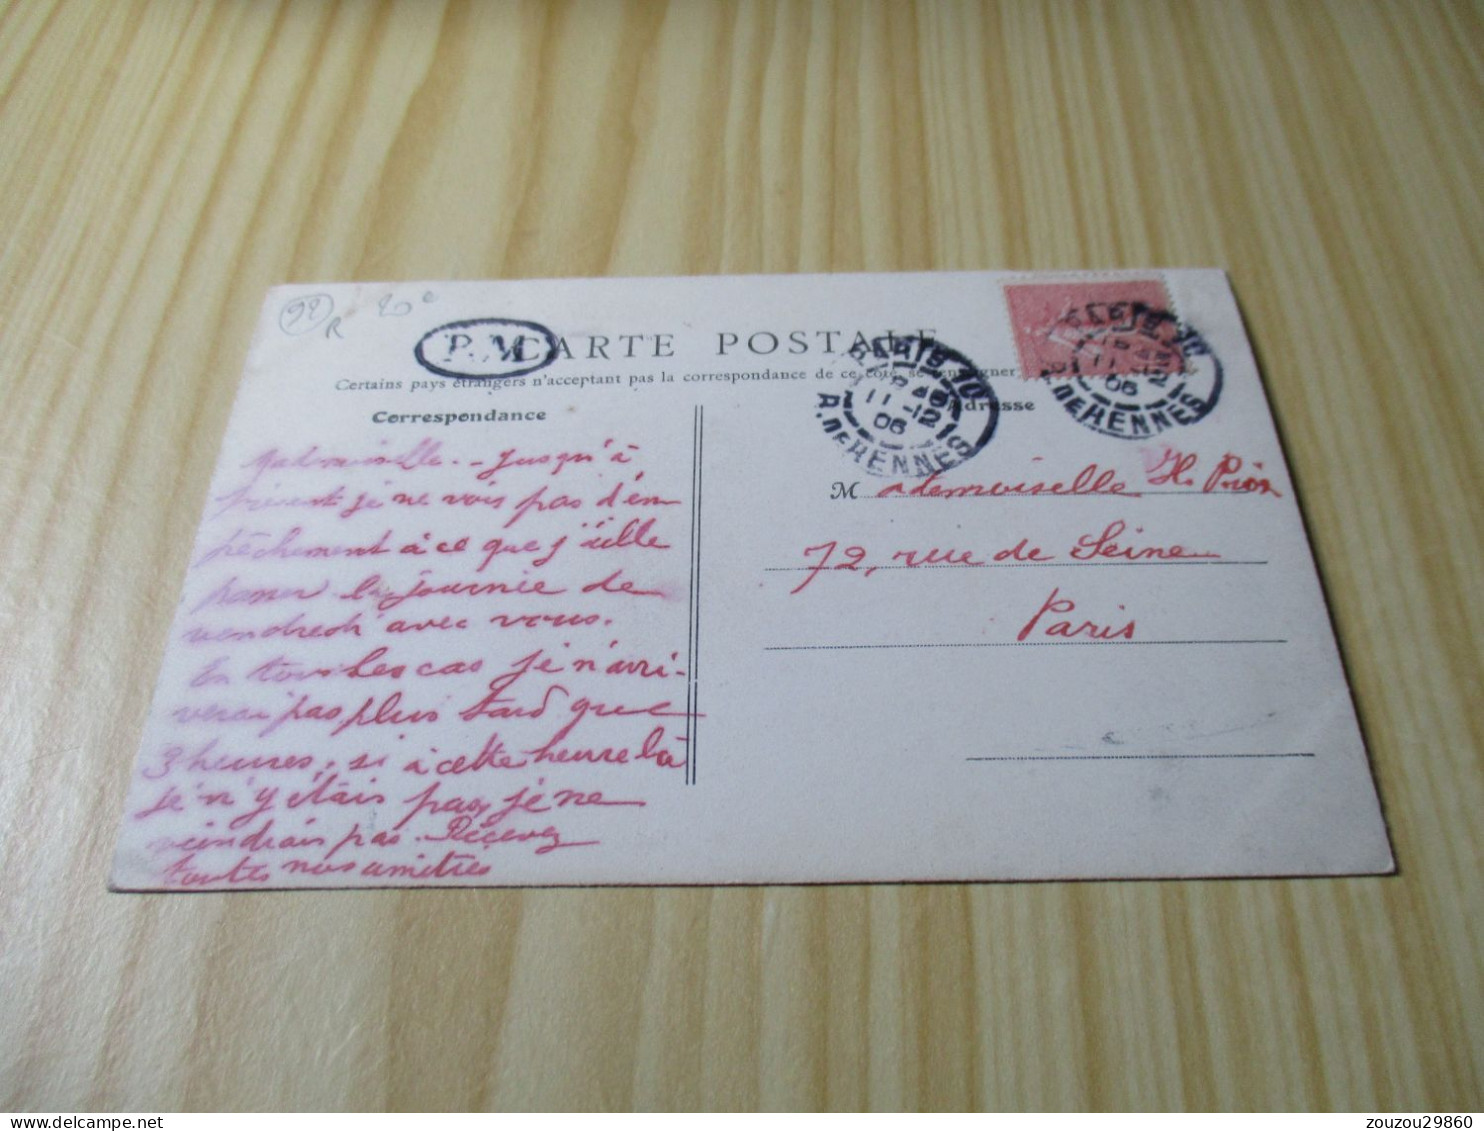 92
R
20 c
P.M
CARTE POSTALE
Certains pays étrangers n'acceptent pas la correspondance de ce côté, se renseigner
Correspondance
Adresse
PARIS 110
11 - 12
06
R. DE RENNES
PARIS 110
11 - 12
06
R. DE RENNES
Mademoiselle. - Jusqu'à
présent je ne vois pas d'em
pêchement à ce que j'aille
passer la journée de
vendredi avec vous.
En tous les cas je n'arri-
verai pas plus tard que
3 heures, si à cette heure là
je n'y étais pas, je ne
viendrais pas. Recevez
toutes nos amitiés
Mademoiselle H. Prion
72, rue de Seine
Paris
zouzou29860